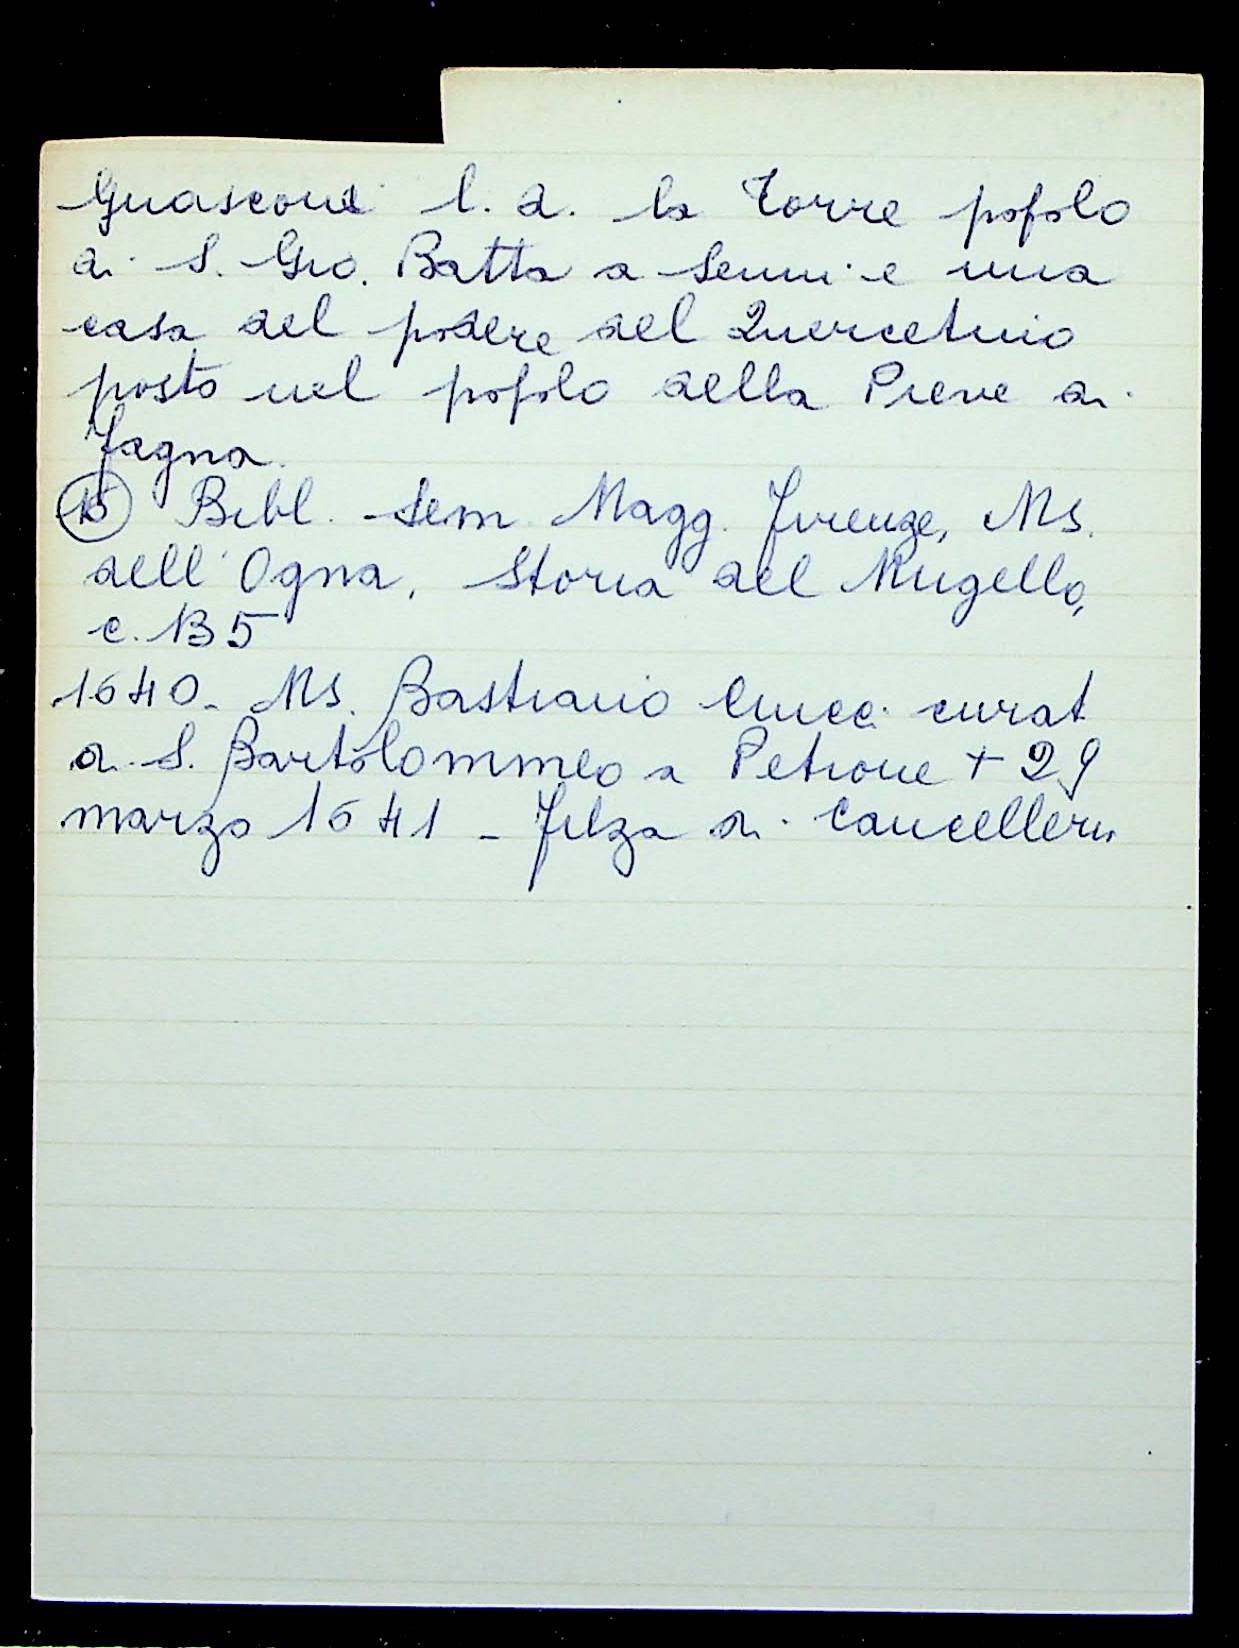 Guasconi l. d. la Torre popolo
di S. Gio. Batta a Senni e una
casa del podere del Quercetino
posto nel popolo della Pieve di
Fagna.
15 Bibl. Sem. Magg. Firenze, Ms.
dell'Ogna, Storia del Mugello,
c. 135
1640 - Ms. Bastiano curat
di S. Bartolommeo a Petrone + 29
marzo 1641 - Filza di Cancelleria